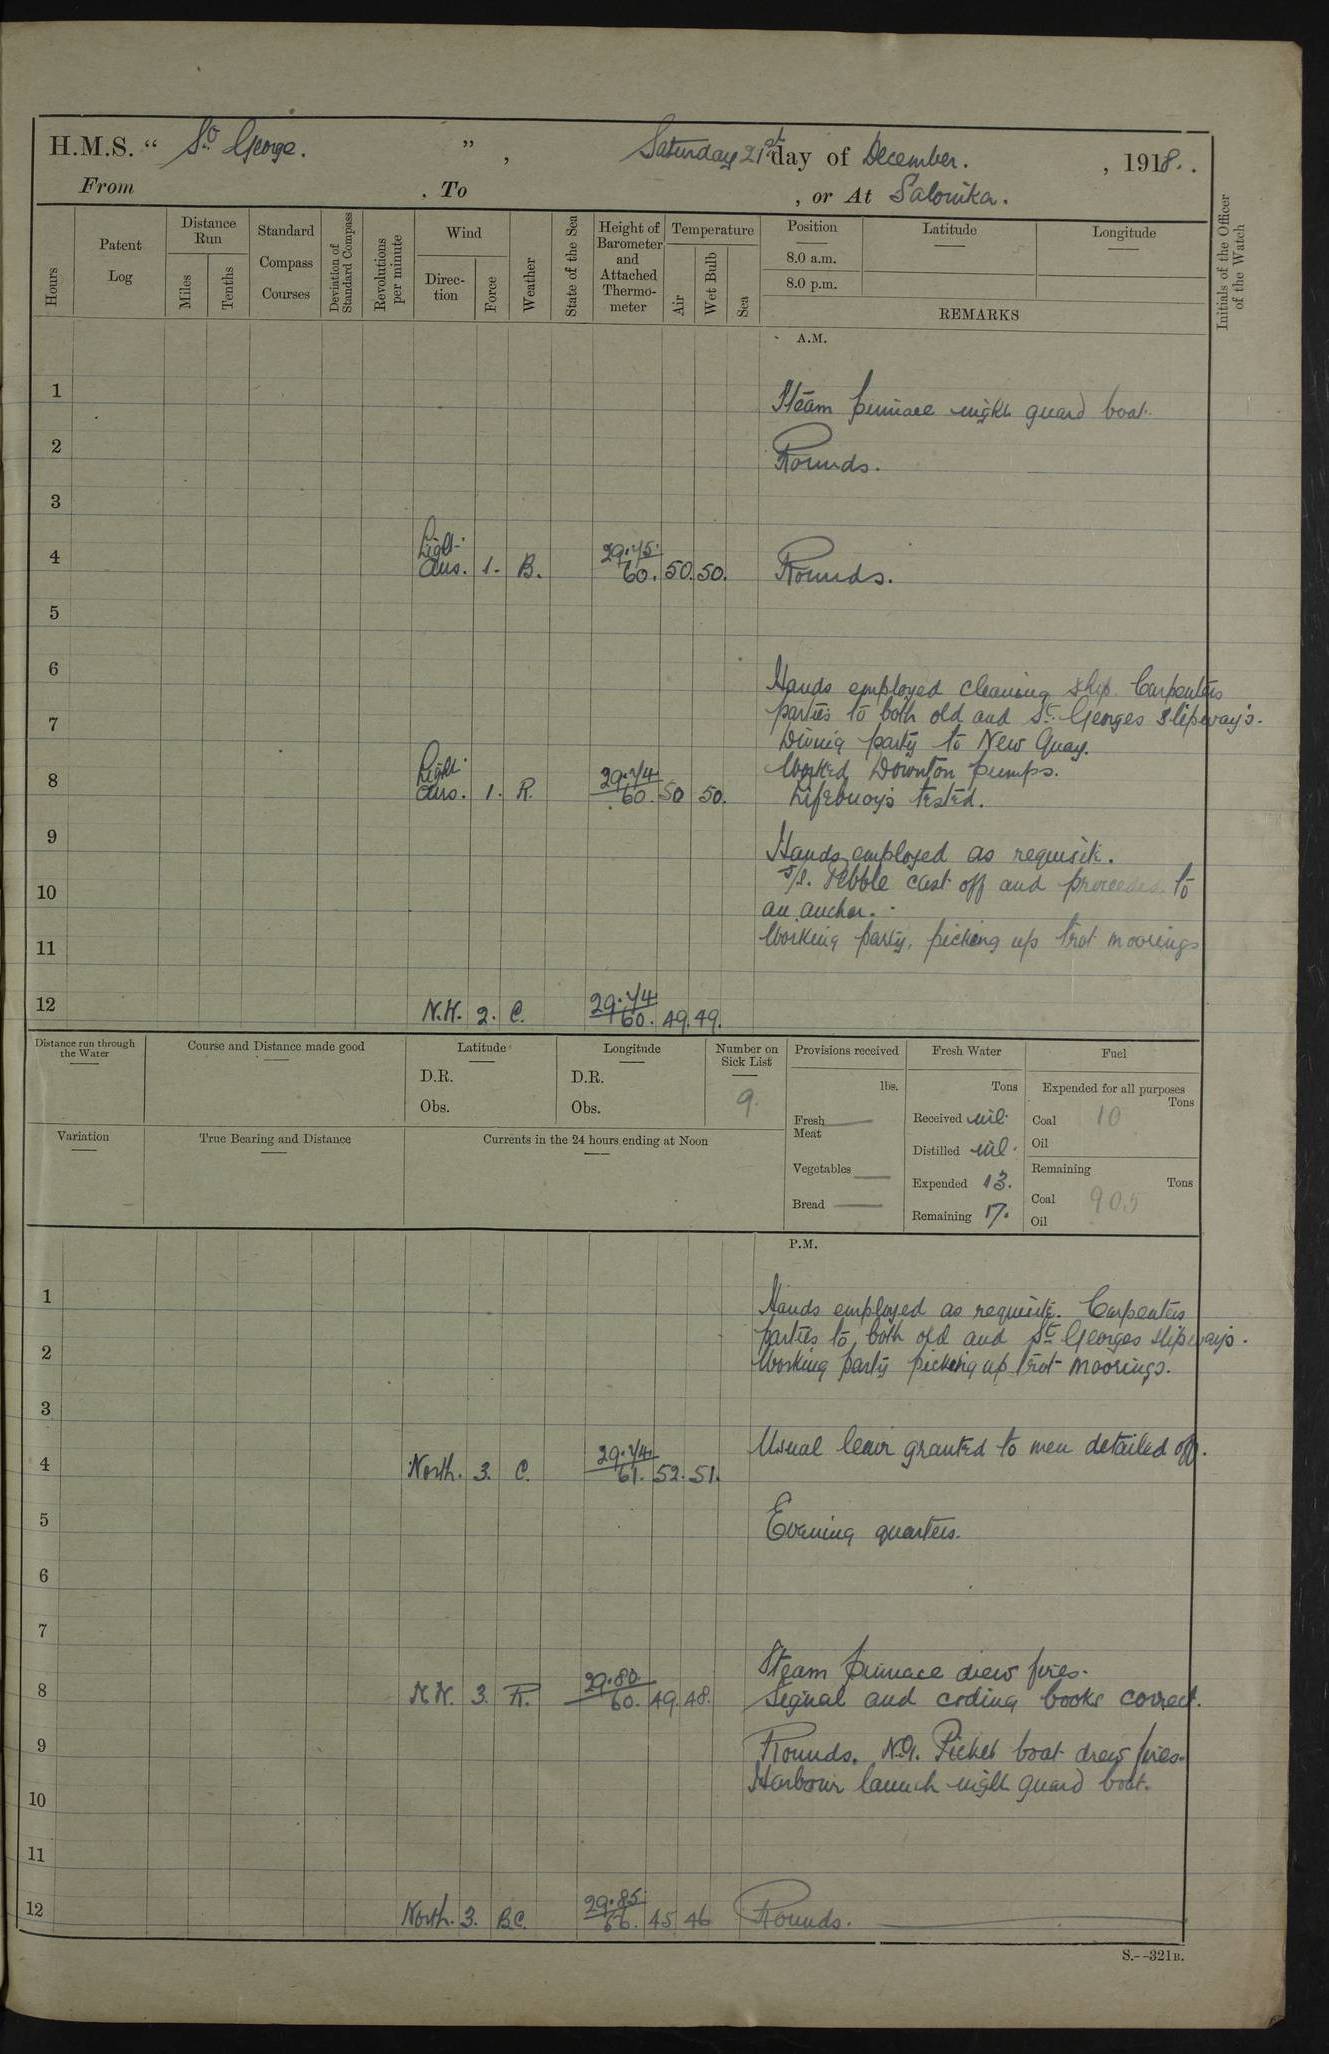 H.M.S. “ St George. ” , Saturday 21st day of December. , 1918.
From . To , or At Salonika.
Hours
Patent Log
Distance Run
Miles
Tenths
Standard Compass Courses
Deviation of Standard Compass
Revolutions per minute
Wind
Direction
Force
Weather
State of the Sea
Height of Barometer and Attached Thermometer
Temperature
Air
Wet Bulb
Sea
Position
8.0 a.m.
8.0 p.m.
Latitude
Longitude
REMARKS
Initials of the Officer of the Watch
A.M.
1
Steam pinnace night guard boat.
2 Rounds.
3
4 Light airs. 1. B. 29.75 60. 50. 50. Rounds.
5
6
Hands employed cleaning ship. Carpenters
7 parties to both old and St. Georges slipway's.
Diving party to New Quay.
Worked Downton pumps.
8 Light airs. 1. R. 29.74 60. 50 50. Lifebuoy's tested.
9
Hands employed as requisite.
S/S. Pebble cast off and proceeded to
10 an anchor.
11 Working party, picking up trot moorings
12 N.W. 2. C. 29.74 60. 49. 49.
Distance run through the Water
Course and Distance made good
Latitude
D.R.
Obs.
Longitude
D.R.
Obs.
Number on Sick List
9.
Provisions received
lbs.
Fresh Meat
Vegetables
Bread
Fresh Water
Tons
Received nil.
Distilled nil.
Expended 13.
Remaining 17.
Fuel
Expended for all purposes
Tons
Coal 10
Oil
Remaining
Tons
Coal 905
Oil
Variation
True Bearing and Distance
Currents in the 24 hours ending at Noon
P.M.
1 Hands employed as requisite. Carpenters
parties to both old and St Georges slipways.
2 Working party picking up trot moorings.
3
Usual leave granted to men detailed off.
4 North. 3. C. 29.74 61. 52. 51.
5 Evening quarters.
6
7
Steam pinnace drew fires.
8 N.W. 3. R. 29.80 60. 49. 48. Signal and coding books correct.
9 Rounds. No1. Picket boat drew fires.
Harbour launch night guard boat.
10
11
12 North. 3. B.C. 29.85 66. 45 46 Rounds.
S.--321B.